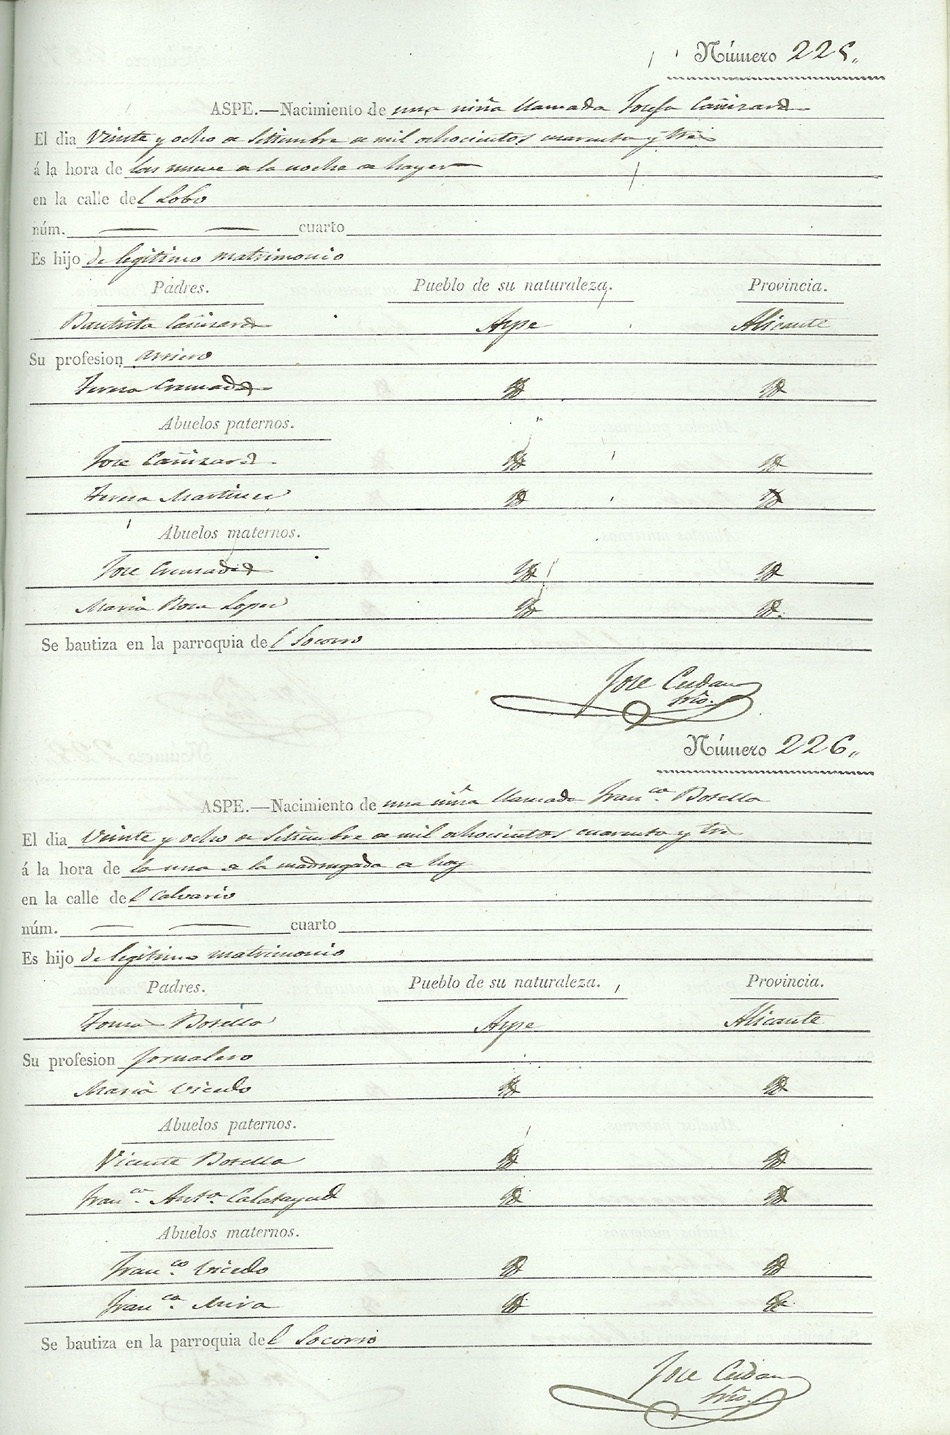 Número 225.
ASPE.—Nacimiento de una niña llamada Josefa Cañizares
El dia Veinte y ocho de Setiembre de mil ochocientos cuarenta y tres
á la hora de las nueve de la noche de hayer
en la calle del Lobo
núm. — — cuarto
Es hijo de legitimo matrimonio
Padres. Pueblo de su naturaleza. Provincia.
Bautista Cañizares Aspe Alicante
Su profesion arriero
Teresa Cremades
Abuelos paternos.
Jose Cañizares
Teresa Martinez
Abuelos maternos.
Jose Cremades
Maria Rosa Lopez
Se bautiza en la parroquia del Socorro
Jose
Srio.
Número 226.
ASPE.—Nacimiento de una niña llamada Fran.ca Botella
El dia Veinte y ocho de Setiembre de mil ochocientos cuarenta y tres
á la hora de la una de la madrugada de hoy
en la calle del Calvario
núm. — — cuarto
Es hijo de legitimo matrimonio
Padres. Pueblo de su naturaleza. Provincia.
Tomas Botella Aspe Alicante
Su profesion Jornalero
Maria Vicedo
Abuelos paternos.
Vicente Botella
Fran.ca Ant.a Calatayud
Abuelos maternos.
Fran.co Vicedo
Fran.ca Mira
Se bautiza en la parroquia del Socorro
Jose
Srio.